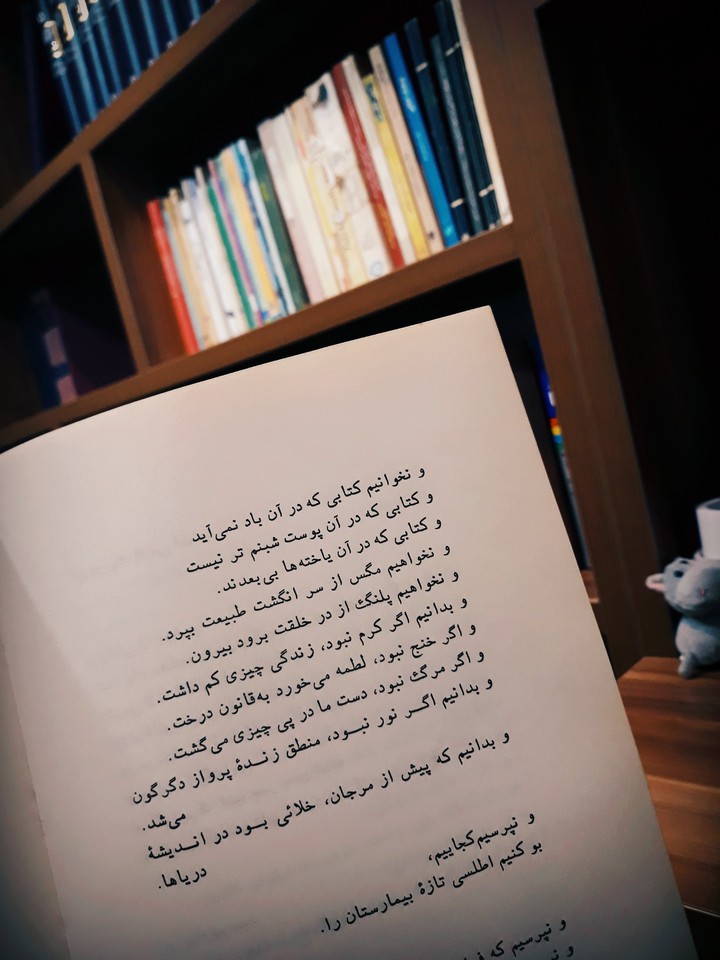 و نخوانیم کتابی که در آن باد نمی‌آید
و کتابی که در آن پوست شبنم تر نیست
و کتابی که در آن یاخته‌ها بی‌بعدند.
و نخواهیم مگس از سر انگشت طبیعت بپرد.
و نخواهیم پلنگ از در خلقت برود بیرون.
و بدانیم اگر کرم نبود، زندگی چیزی کم داشت.
و اگر خنج نبود، لطمه می‌خورد به‌قانون درخت.
و اگر مرگ نبود، دست ما در پی چیزی می‌گشت.
و بدانیم اگر نور نبود، منطق زندهٔ پرواز دگرگون
می‌شد.
و بدانیم که پیش از مرجان، خلائی بود در اندیشهٔ
دریاها.
و نپرسیم‌کجاییم،
بو کنیم اطلسی تازهٔ بیمارستان را.
و نپرسیم که